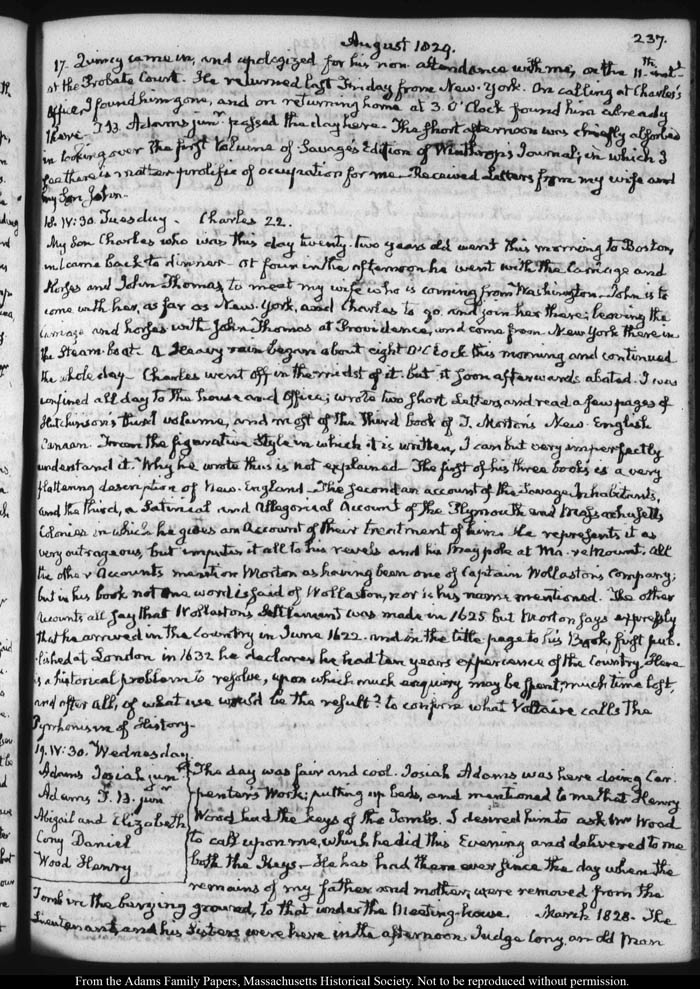 August 1829.
237.
17. Quincy came in, and apologized for his non attendance with me, on the 11th. instt.
at the Probate Court. He returned last Friday from New-York. On calling at Charles's
Office, I found him gone, and on returning home at 3. O'Clock found him already
there. T. B. Adams junr. passed the day here. The short afternoon was chiefly absorbed
in looking over the first Volume of Savage's Edition of Winthrop's Journal; in which I
see there is matter prolific of occupation for me. Received Letters from my wife and
my Son John.
18. IV:30. Tuesday. Charles 22.
My Son Charles who was this day twenty-two years old went this morning to Boston,
and came back to dinner. At four in the afternoon he went with the Carriage and
Horses and John Thomas, to meet my wife who is coming from Washington. John is to
come with her, as far as New-York, and Charles to go, and join her there; leaving the
Carriage and horses with John Thomas at Providence, and come from New York there in
the Steam-boat. A Heavy rain began about eight O'Clock this morning and continued
the whole day. Charles went off in the midst of it. but it soon afterwards abated. I was
confined all day to the house and Office; wrote two short Letters, and read a few pages of
Hutchinson's third volume, and most of the third book of T. Morton's New English
Canaan. From the figurative Style in which it is written, I can but very imperfectly
understand it. Why he wrote thus is not explained. The first of his three books is a very
flattering description of New-England. The second an account of the Savage Inhabitants,
and the third, a Satirical and Allegorical Account of the Plymouth and Massachusetts
Colonies in which he gives an Account of their treatment of him. He represents it as
very outrageous, but imputes it all to his revels and his may pole at Ma-re Mount. All
the other Accounts mention Morton as having been one of Captain Wollaston's Company;
but in his book not one word is said of Wollaston, nor is his name mentioned. The other
accounts all say that Wollaston's Settlement was made in 1625 but Morton says expressly
that he arrived in the Country in June 1622. and in the title page to his Book, first pub-
lished at London in 1632 he declares he had ten years experience of the Country. Here
is a historical problem to resolve, upon which much enquiry may be spent, much time lost,
and after all, of what use would be the result? to confirm what Voltaire calls the
Pyrrhonism of History.
19. IV:30. Wednesday.
Adams Josiah junr.
Adams T. B. junr
Abigail and Elizabeth
Cony Daniel
Wood Henry
The day was fair and cool. Josiah Adams was here doing Car-
penter's Work; putting up beds, and mentioned to me that Henry
Wood had the keys of the Tombs. I desired him to ask Mr Wood
to call upon me, which he did this Evening and delivered to me
both the Keys. He has had them ever since the day when the
remains of my father and mother, were removed from the
Tomb in the burying ground, to that under the Meeting-house. March 1828. The
Lieutenant, and his Sisters were here in the afternoon. Judge Cony, an old man
From the Adams Family Papers, Massachusetts Historical Society. Not to be reproduced without permission.